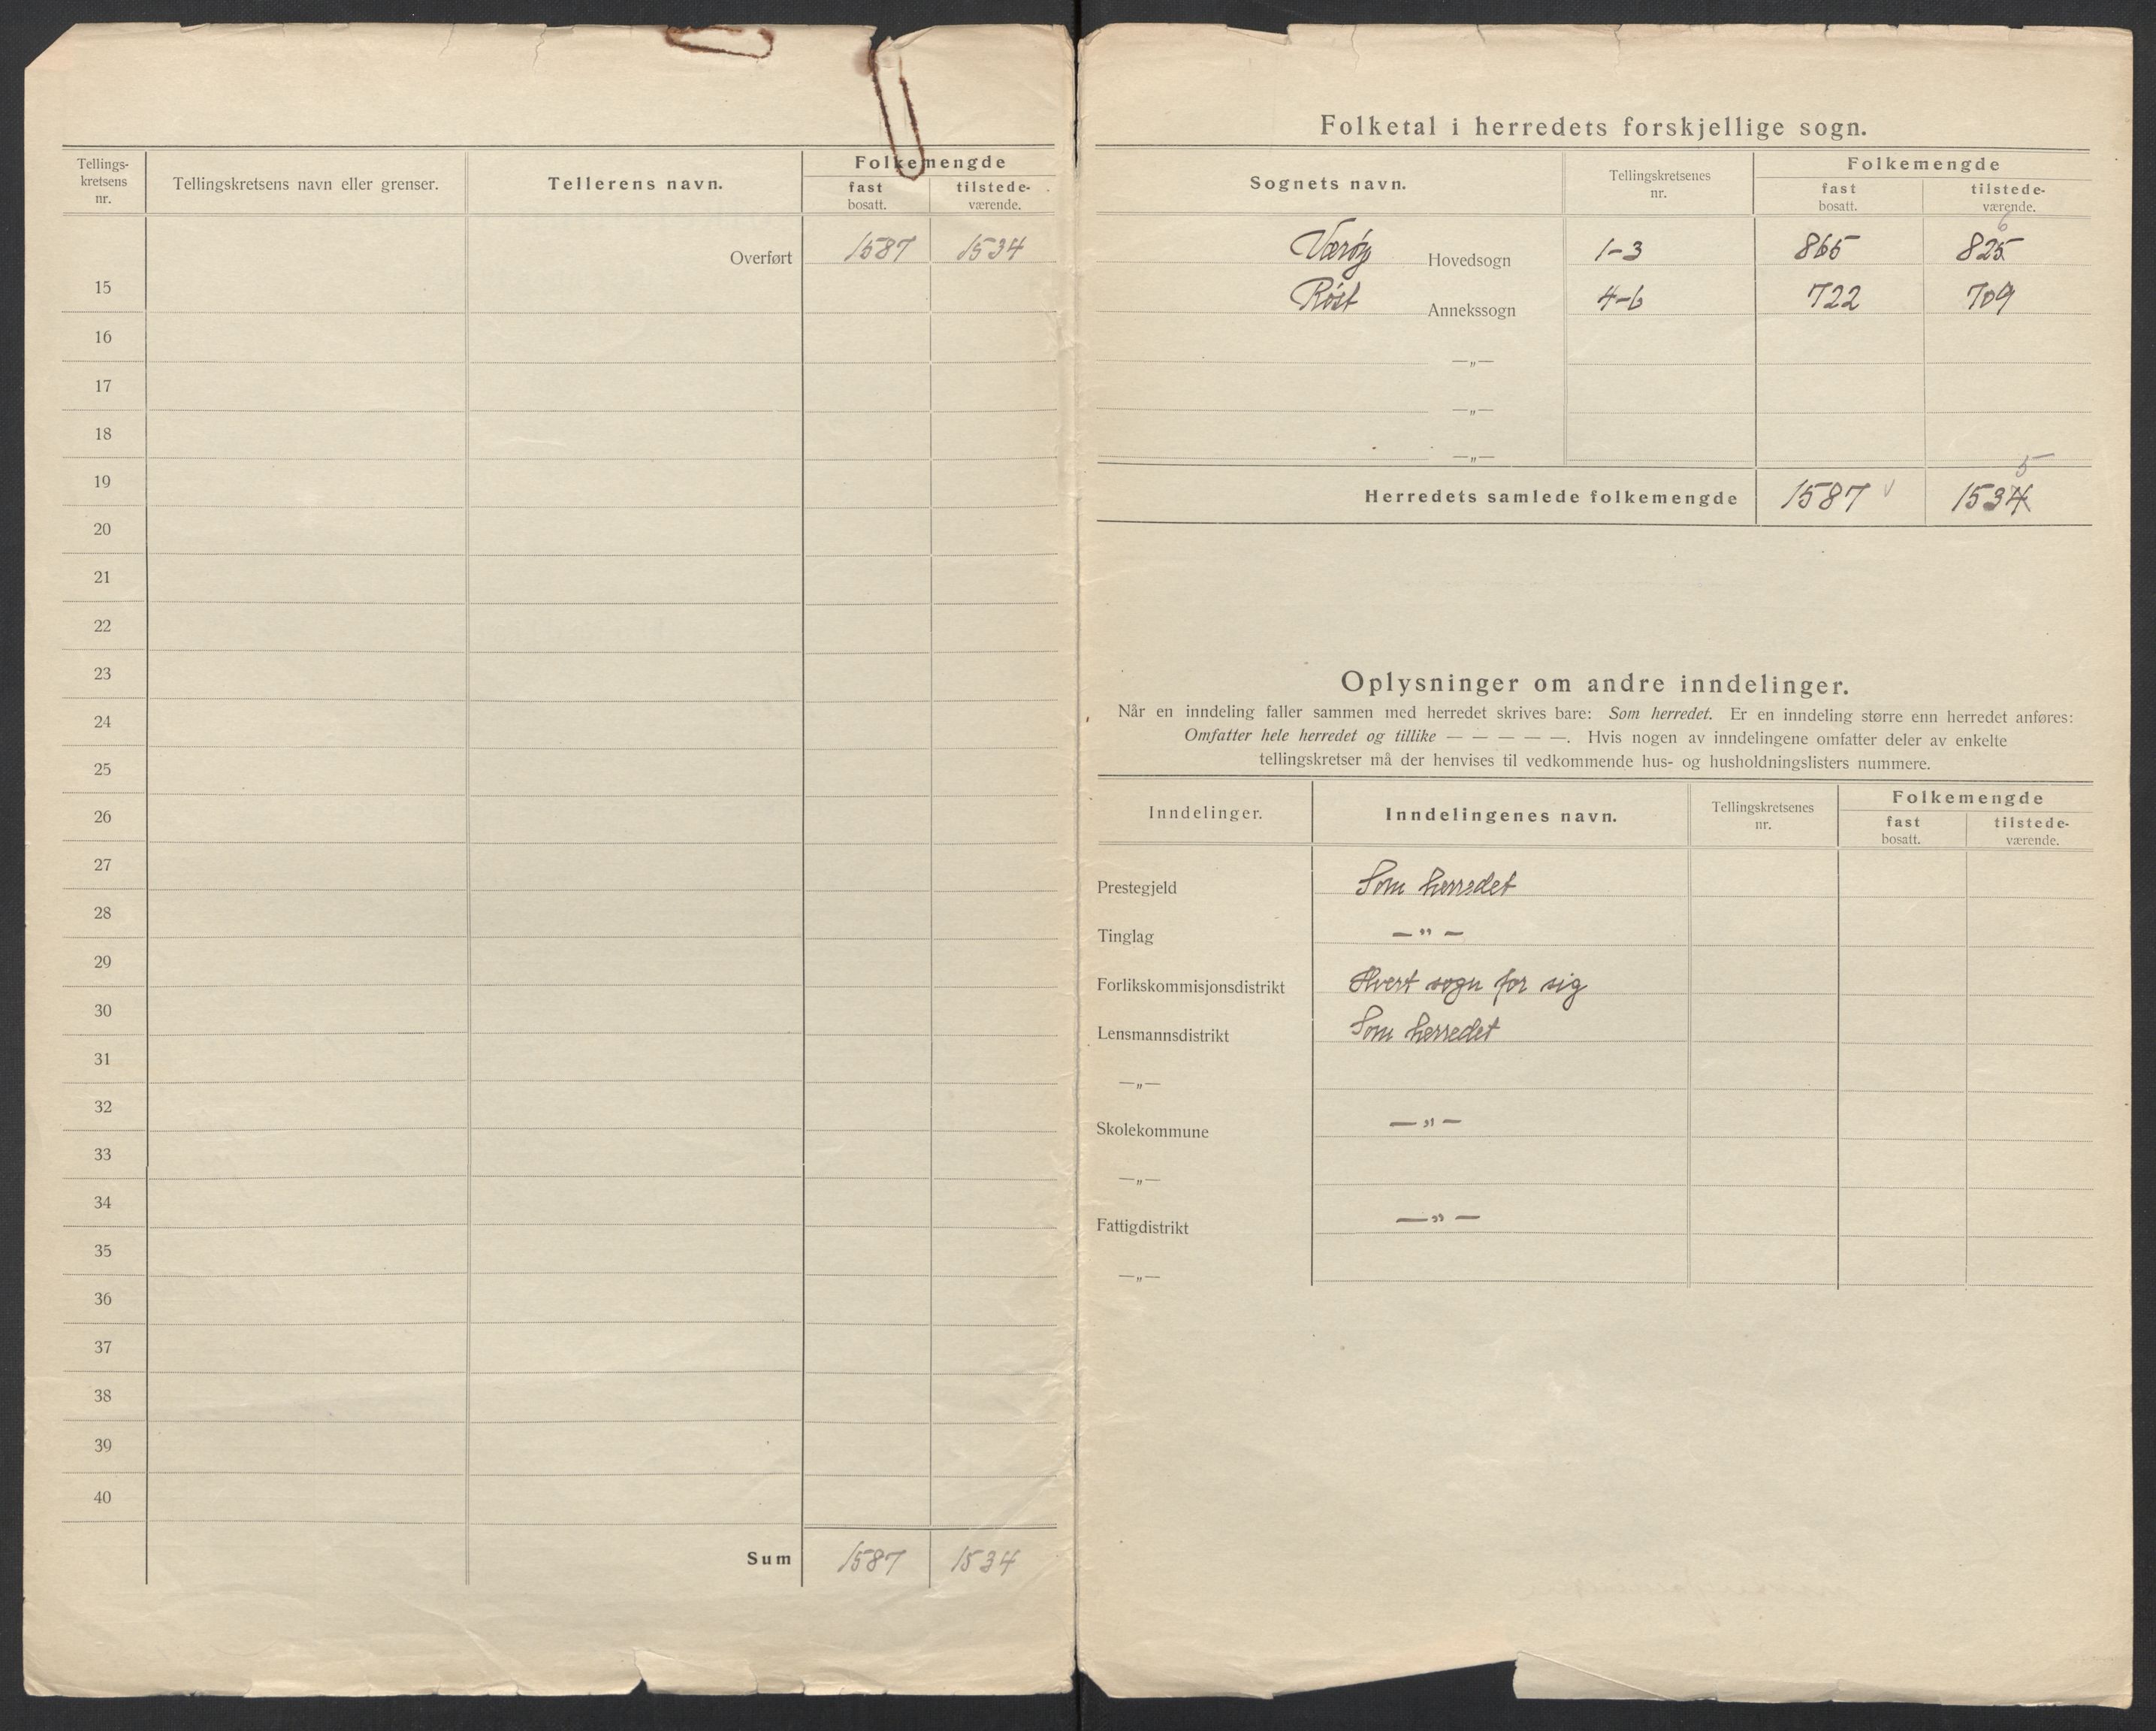 Tellings-
kretsens
nr.
Tellingskretsens navn eller grenser.
Tellerens navn.
Folkemengde
fast
bosatt.
tilstede-
værende.
Overført 1587 1534
15
16
17
18
19
20
21
22
23
24
25
26
27
28
29
30
31
32
33
34
35
36
37
38
39
40
Sum 1587 1534
Folketal i herredets forskjellige sogn.
Sognets navn.
Tellingskretsenes
nr.
Folkemengde
fast
bosatt.
tilstede-
værende.
6
Værøy Hovedsogn 1-3 865 825
Røst Annekssogn 4-6 722 709
—„—
—„—
—„—
5
Herredets samlede folkemengde 1587 √ 1534
Oplysninger om andre inndelinger.
Når en inndeling faller sammen med herredet skrives bare: Som herredet. Er en inndeling større enn herredet anføres:
Omfatter hele herredet og tillike — — — — —. Hvis nogen av inndelingene omfatter deler av enkelte
tellingskretser må der henvises til vedkommende hus- og husholdningslisters nummere.
Inndelinger.
Inndelingenes navn.
Tellingskretsenes
nr.
Folkemengde
fast
bosatt.
tilstede-
værende.
Prestegjeld Som herredet
Tinglag —„—
Forlikskommisjonsdistrikt Hvert sogn for sig
Lensmannsdistrikt Som herredet
—„—
Skolekommune —„—
—„—
Fattigdistrikt —„—
—„—